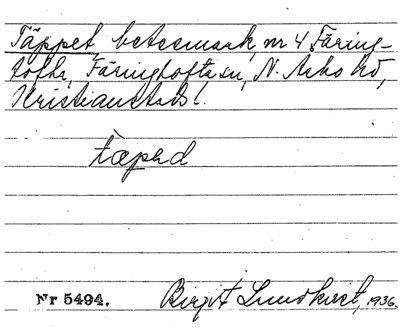 Täppet, betesmark, nr 4 Färing-
tofta, Färingtofta sn, N. Åsbo hd,
Kristianstads l.
täpəd
Nr 5494. Birgit Lundkvist, 1936.